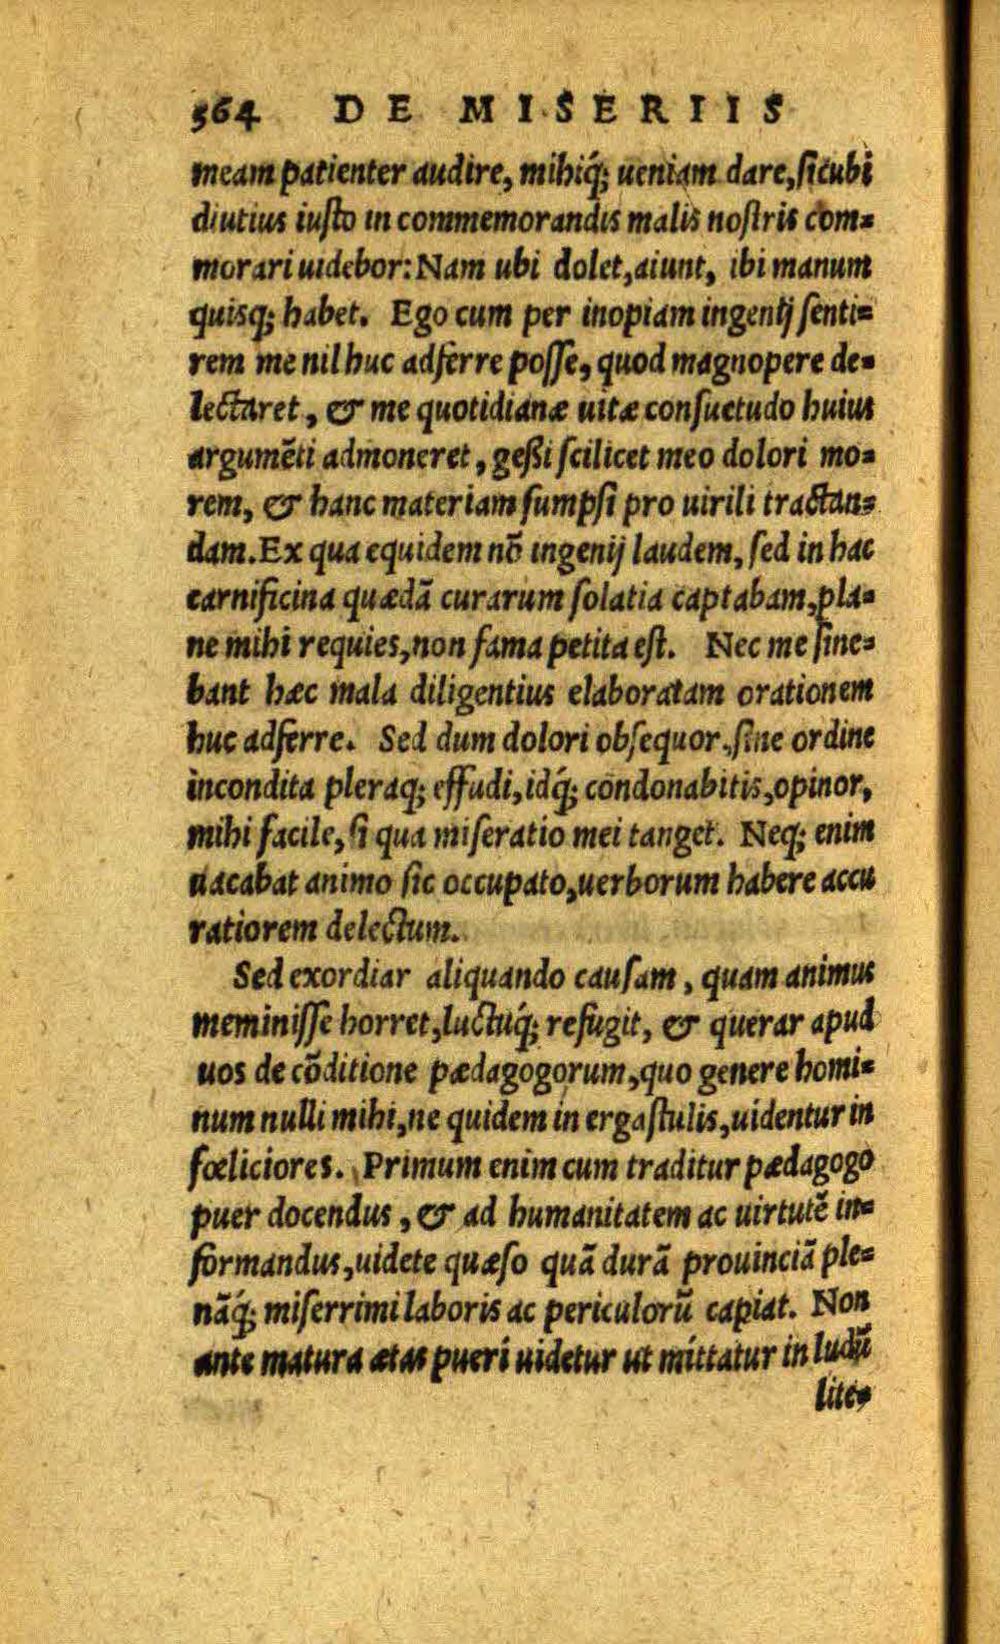 364 DE MISERIIS
meam patienter audire, mihiq́; ueniam dare, sicubi
diutius iusto in commemorandis malis nostris com-
morari uidebor: Nam ubi dolet, aiunt, ibi manum
quisq; habet. Ego cum per inopiam ingenij senti-
rem me nil huc adferre posse, quod magnopere de-
lectaret, & me quotidianæ uitæ consuetudo huius
argumẽti admoneret, geßi scilicet meo dolori mo-
rem, & hanc materiam sumpsi pro uirili tractan-
dam. Ex qua equidem nõ ingenij laudem, sed in hac
carnificina quædã curarum solatia captabam, pla-
ne mihi requies, non fama petita est. Nec me sine-
bant hæc mala diligentius elaboratam orationem
huc adferre. Sed dum dolori obsequor, sine ordine
incondita pleraq; effudi, idq́; condonabitis, opinor,
mihi facile, si qua miseratio mei tanget. Neq; enim
uacabat animo sic occupato, uerborum habere accu
ratiorem delectum.
Sed exordiar aliquando causam, quam animus
meminisse horret, luctuq́; refugit, & querar apud
uos de cõditione pædagogorum, quo genere homi-
num nulli mihi, ne quidem in ergastulis, uidentur in
fœliciores. Primum enim cum traditur pædagogo
puer docendus, & ad humanitatem ac uirtutẽ in-
formandus, uidete quæso quã durã prouinciã ple-
nãq́; miserrimi laboris ac periculorũ capiat. Non
ante matura ætas pueri uidetur ut mittatur in ludũ
lite-